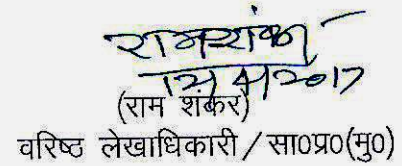 रामशंकर
12/4/2017
(राम शंकर)
वरिष्ठ लेखाधिकारी / सा०प्र०(मु०)